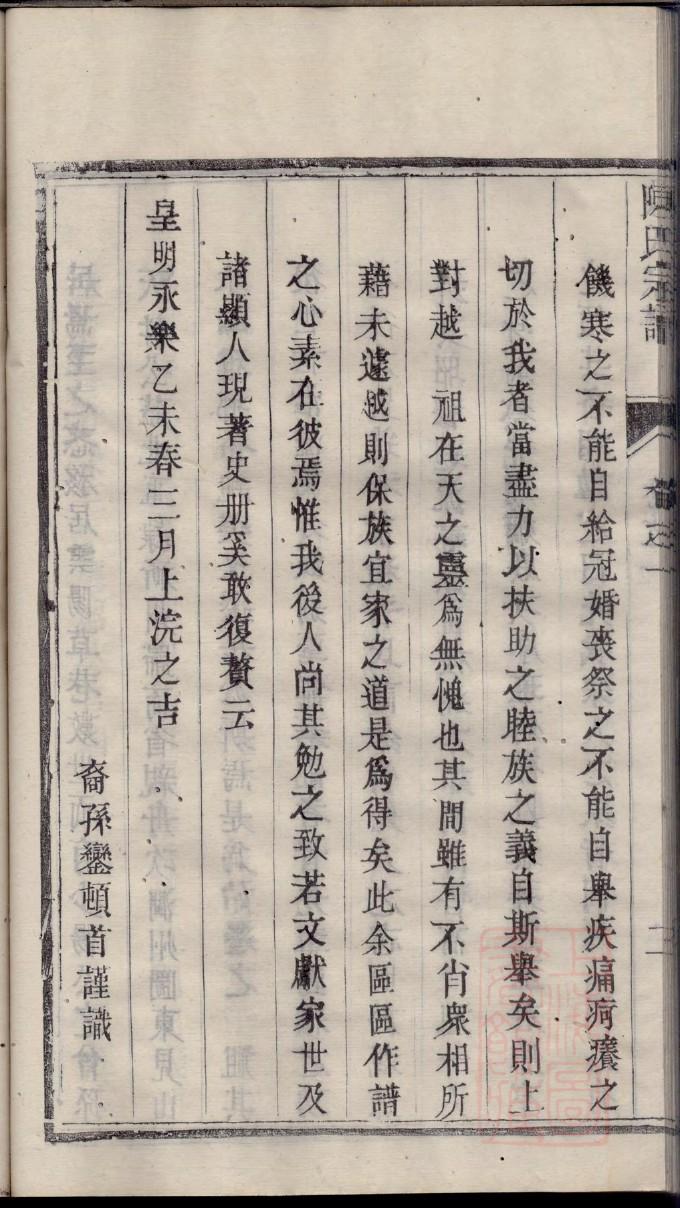 氏宗譜
卷之一
二
饑寒之不能自給冠婚喪祭之不能自舉疾痛疴癢之
切於我者當盡力以扶助之睦族之義自斯舉矣則上
對越　祖在天之靈爲無愧也其間雖有不肖衆相所
藉未遽越則保族宜家之道是爲得矣此余區區作譜
之心素在彼焉惟我後人尚其勉之致若文獻家世及
諸顯人現著史册奚敢復贅云
皇明永樂乙未春三月上浣之吉
裔孫鑾頓首謹識